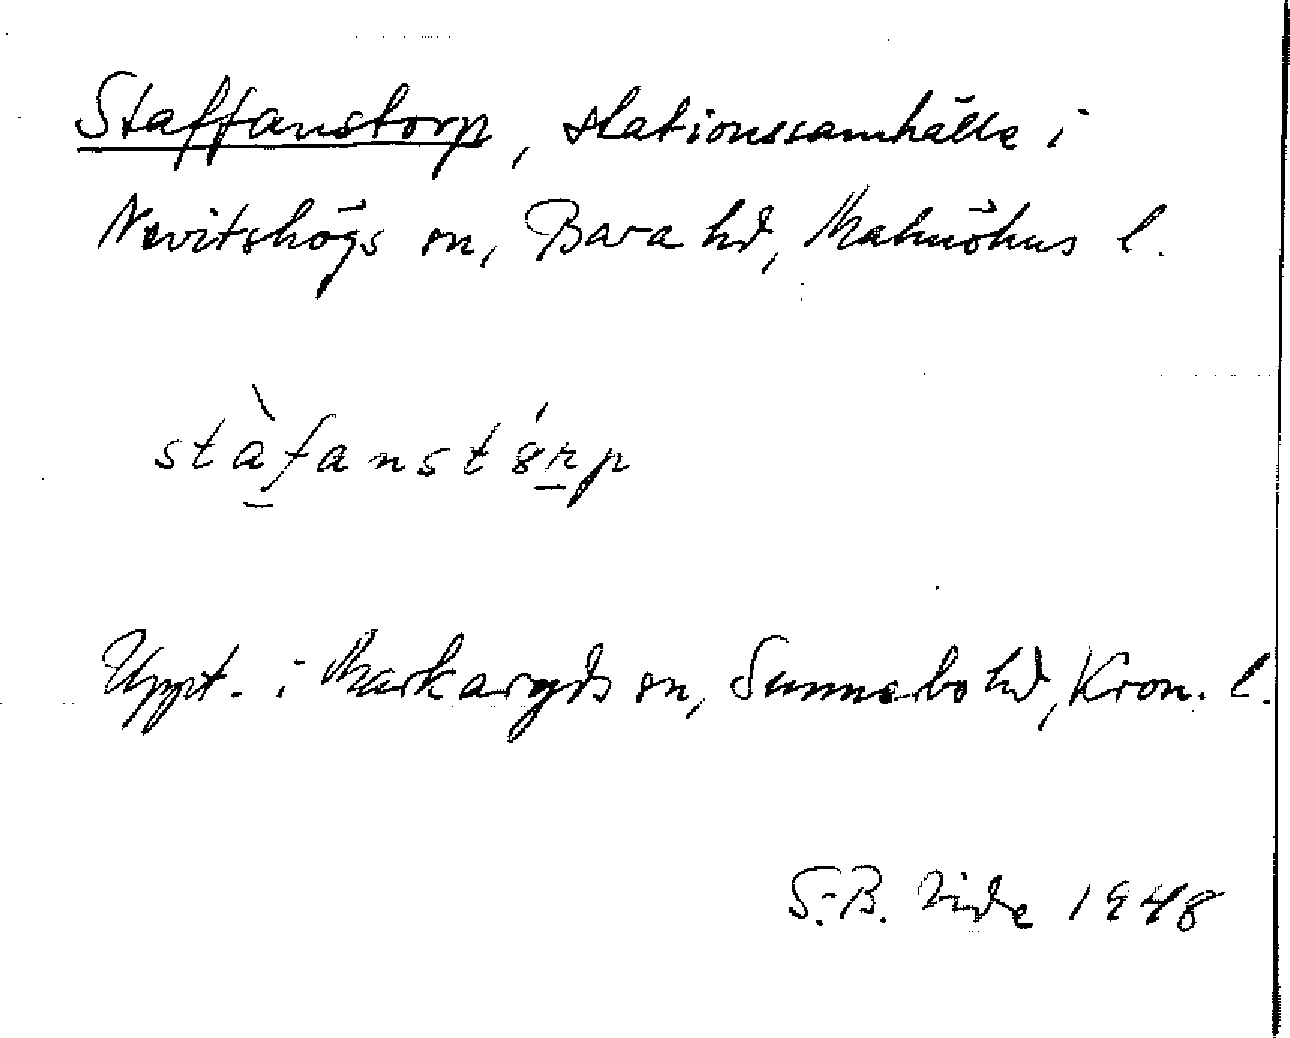 Staffanstorp, stationssamhälle i
Nevitshögs sn, Bara hd, Malmöhus l.
stàfanstórp
Uppt. i Markaryds sn, Sunnerbo hd, Kron. l.
S.-B. Vide 1948